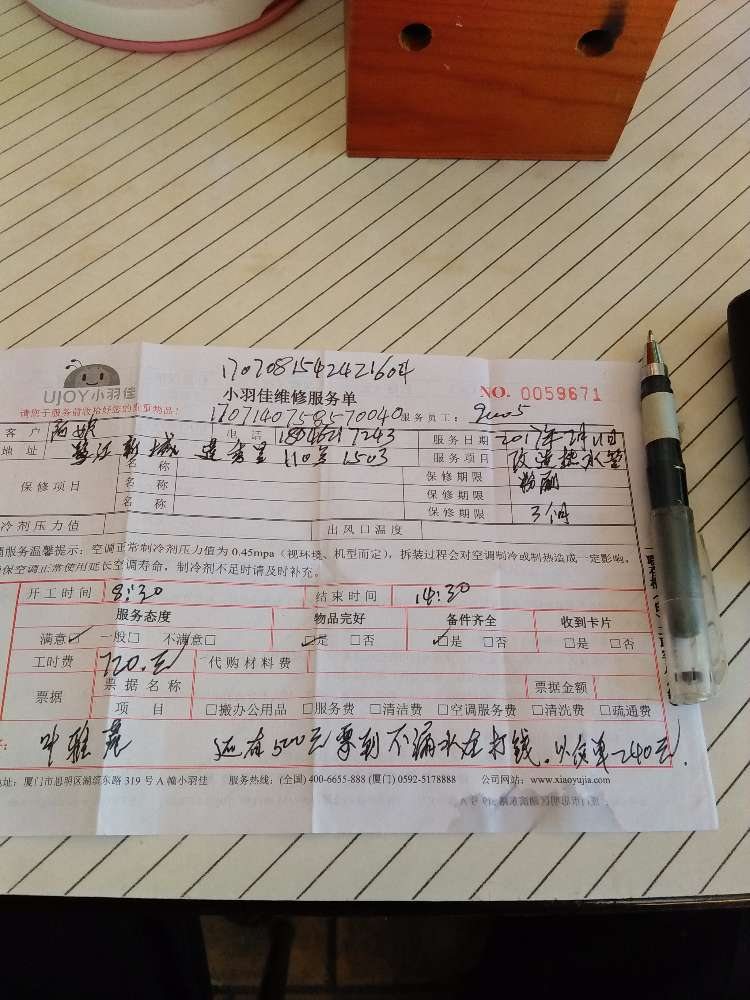 1707081542421604
UJOY小羽佳
小羽佳维修服务单
NO. 0059671
请您于服务前收拾好您的贵重物品!
17071407585570040
服务员工:
客 户
电 话 18046217243
服务日期 2017年2月11日
地 址 新城 110号 1503
服务项目 改造热水管
保修项目
名 称
保修期限
名 称
保修期限
名 称
保修期限 3个月
冷剂压力值
出风口温度
调服务温馨提示:空调正常制冷剂压力值为 0.45mpa(视环境、机型而定),拆装过程会对空调制冷或制热造成一定影响,
保空调正常使用延长空调寿命,制冷剂不足时请及时补充。
开工时间 8:30 结束时间 14:30
服务态度 物品完好 备件齐全 收到卡片
满意□ 一般□ 不满意□ □是 □否 □是 □否 □是 □否
工时费 720.元 代购材料费
票据
票据名称
票据金额
项 目 □搬办公用品 □服务费 □清洁费 □空调服务费 □清洗费 □疏通费
还有500元要到不漏水在打钱. 240元.
地址:厦门市思明区湖滨东路 319 号 A 幢小羽佳 服务热线:(全国) 400-6655-888 (厦门) 0592-5178888 公司网站:www.xiaoyujia.com